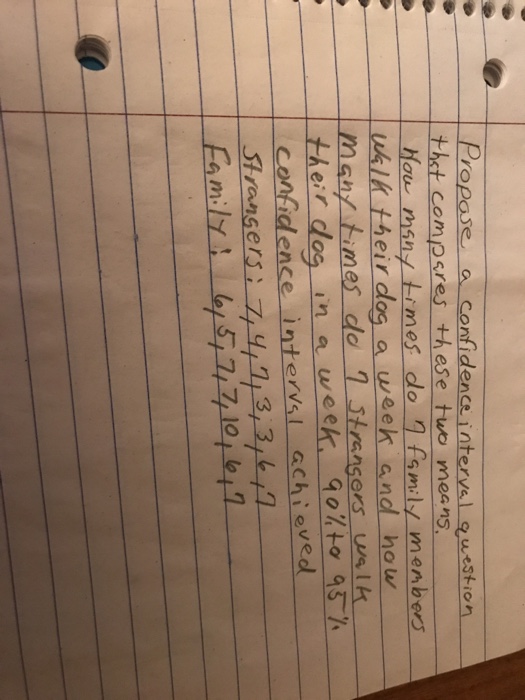 Propose a confidence interval question
that compares these two means.
How many times do 7 family members
walk their dog a week and how
many times do 7 strangers walk
their dog in a week. 90% to 95%
confidence interval achieved
Strangers: 7,4,7,3,3,6,7
Family: 6,5,7,7,10,6,7